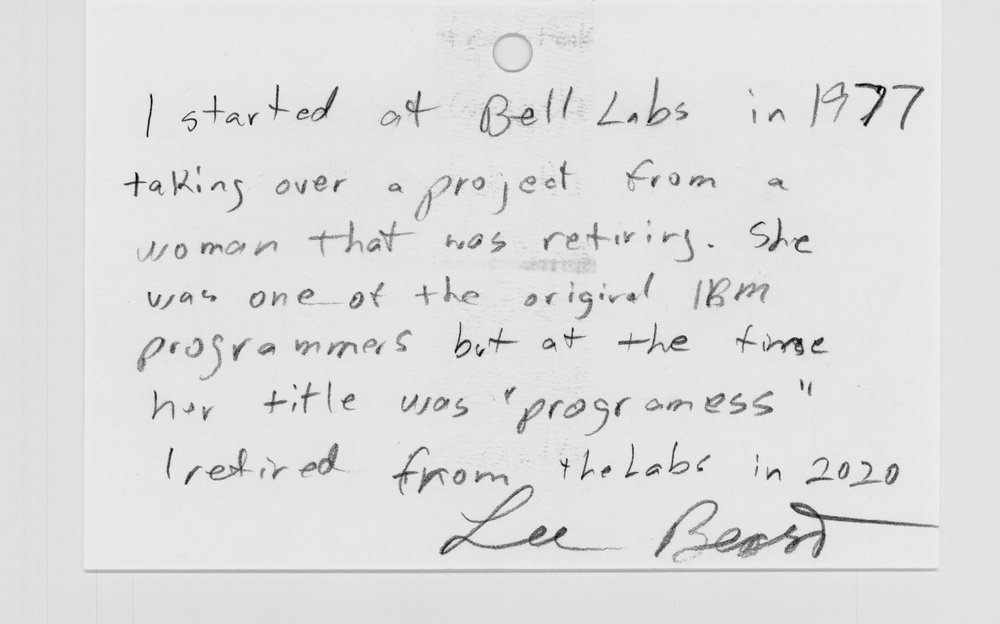 I started at Bell Labs in 1977
taking over a project from a
woman that was retiring. She
was one of the original IBM
programmers but at the time
her title was "programess"
I retired from the Labs in 2020
Lee